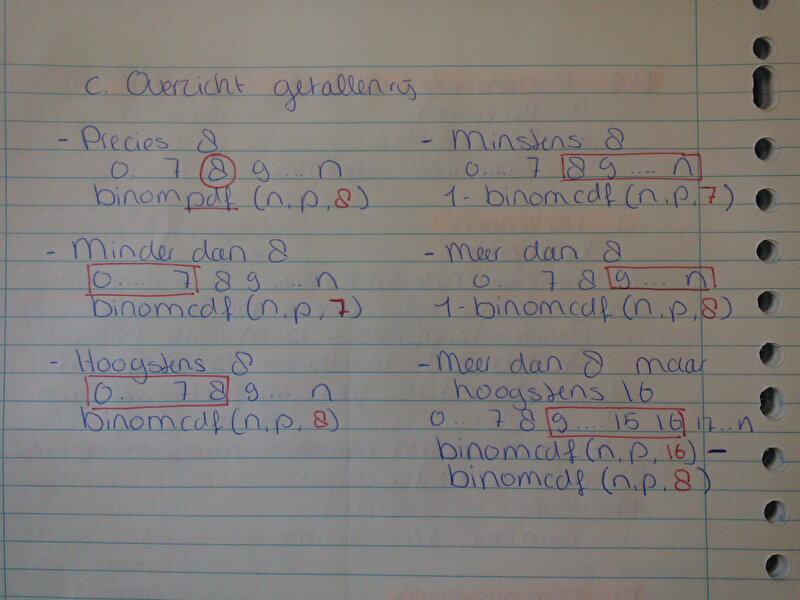 C. Overzicht getallenrij
- Precies 8
0. 7 8 9.... n
binompdf (n,p,8)
- Minder dan 8
0.... 7 8 9.... n
binomcdf (n,p,7)
- Hoogstens 8
0..... 7 8 9.... n
binomcdf (n,p,8)
- Minstens 8
0.... 7 8 9.... n
1- binomcdf (n,p,7)
- Meer dan 8
0.... 7 8 9.... n
1- binomcdf (n,p,8)
- Meer dan 8 maar
hoogstens 16
0....7 8 9.... 15 16 17...n
binomcdf (n,p,16) –
binomcdf (n,p,8)